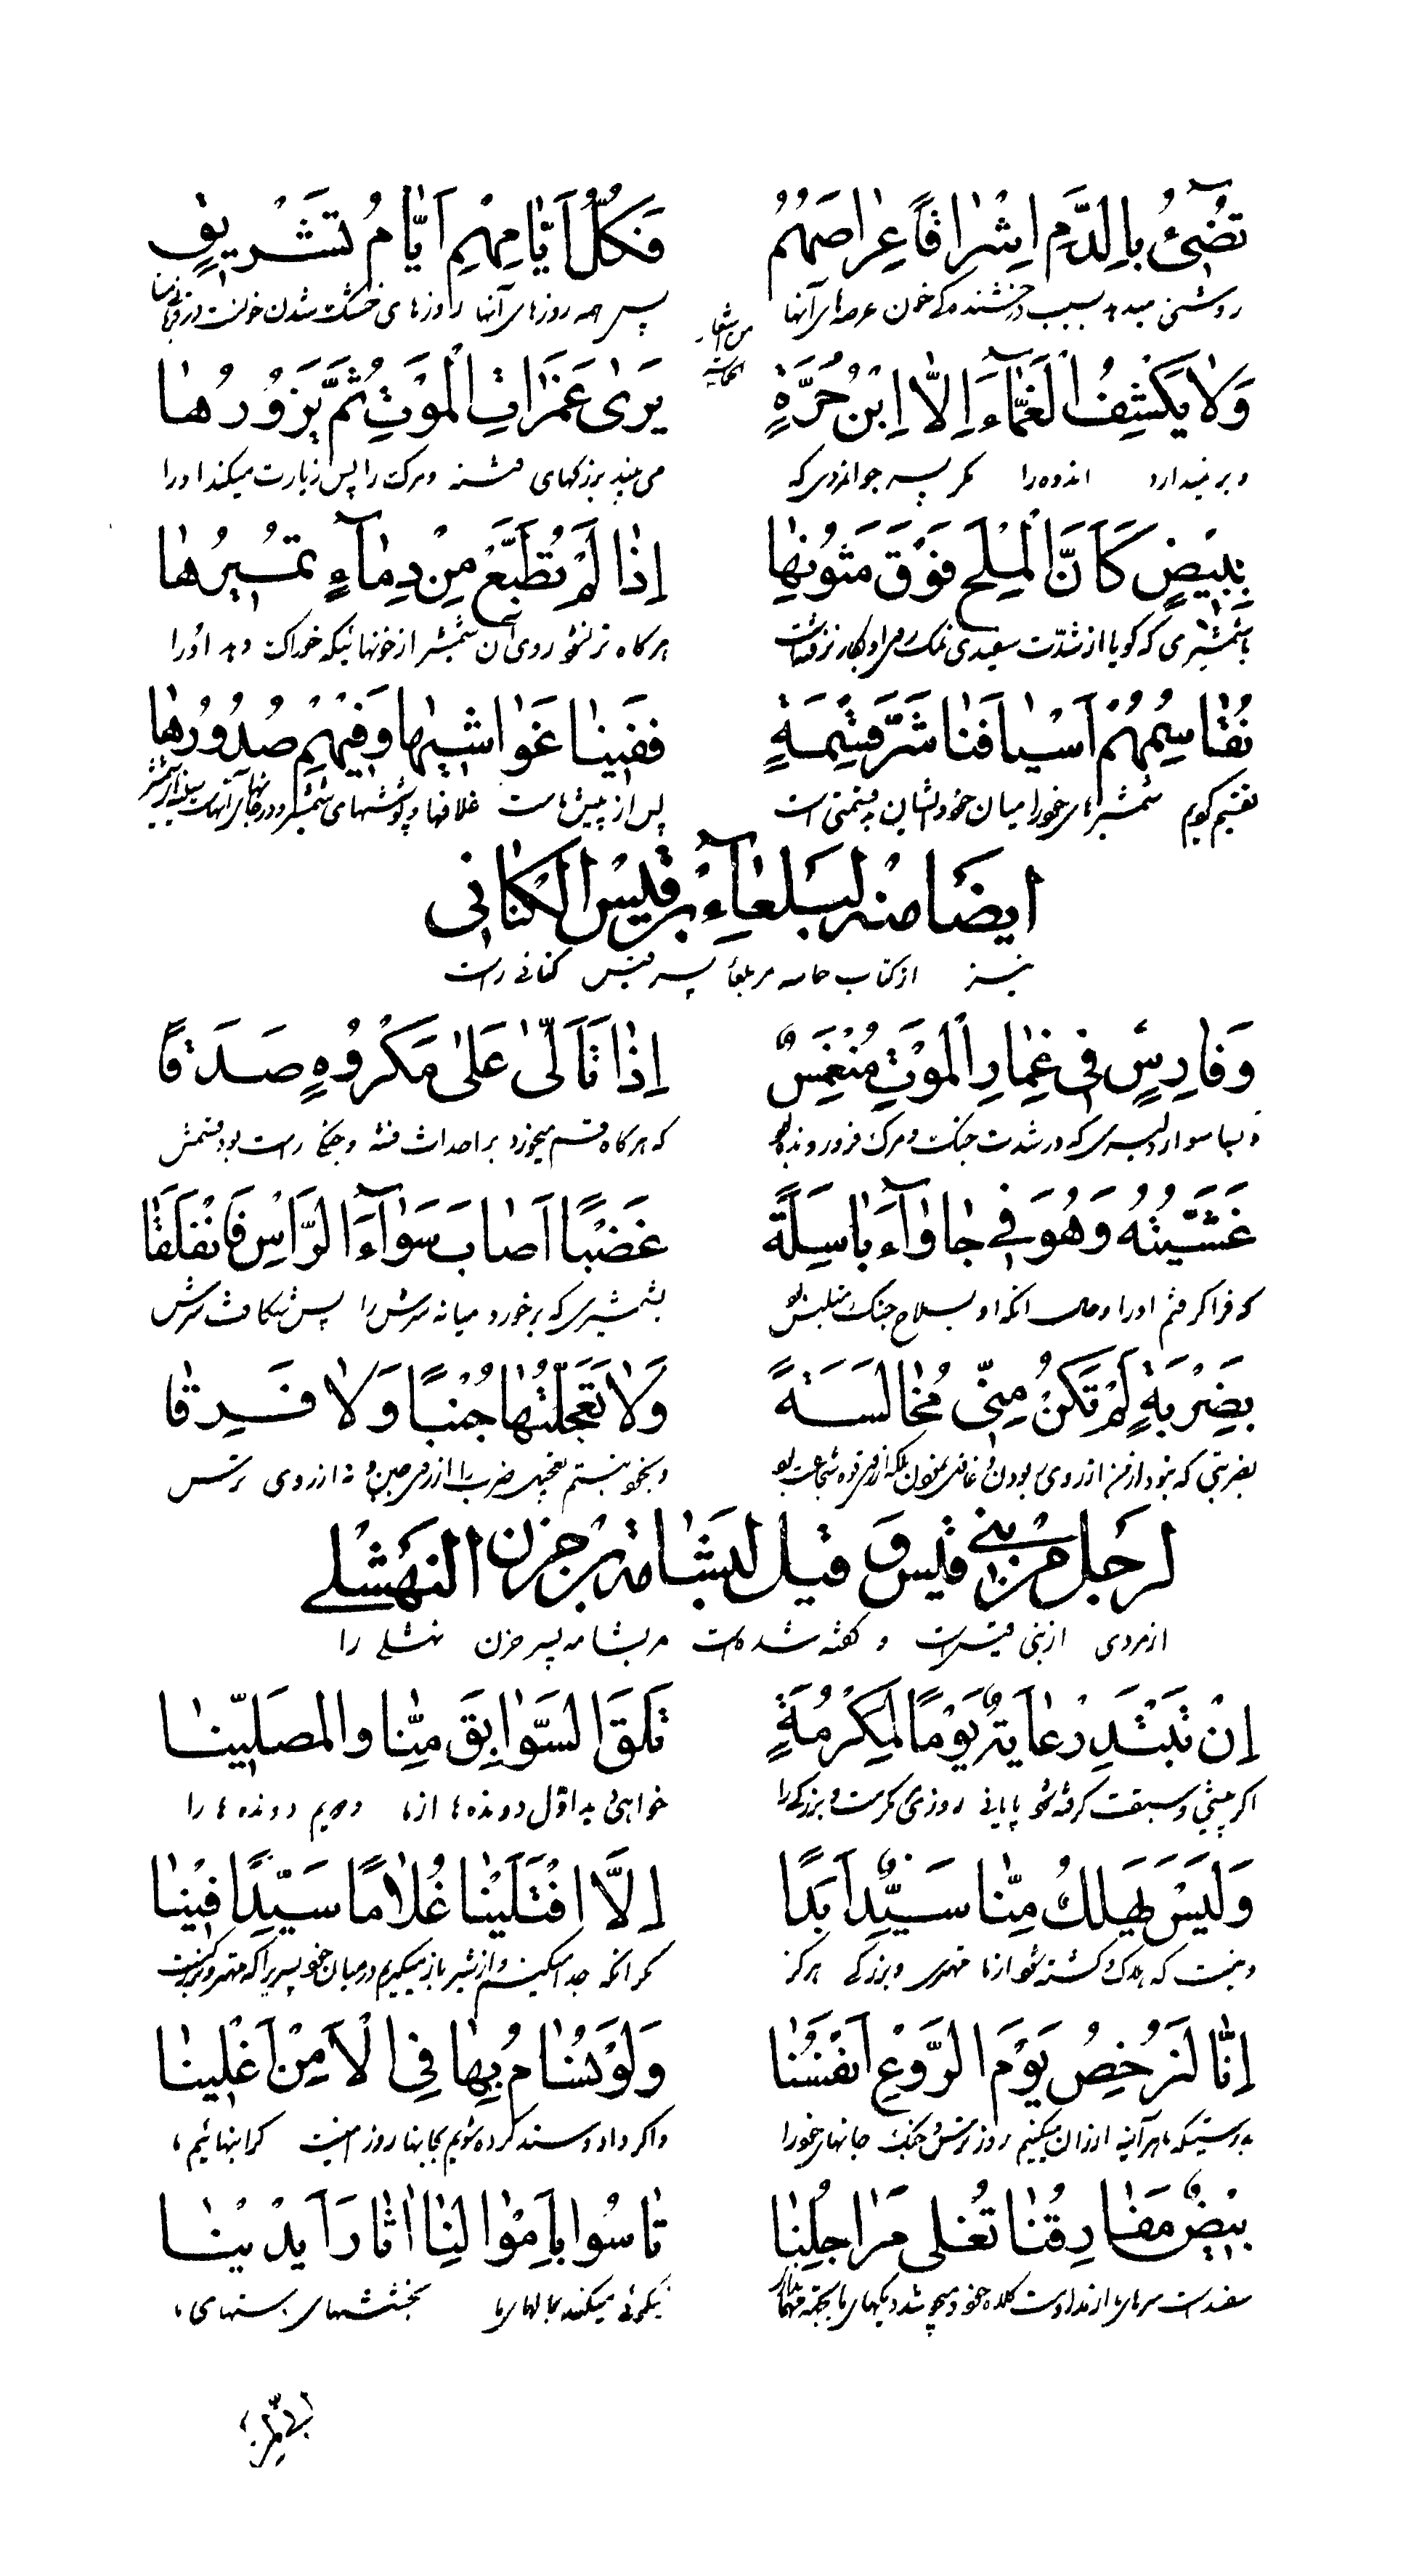 تُضِیءُ بِالدَّمِ اِشْرَاقًا عِرَاصُهُمُ فَكُلُّ اَیَّامِهِمِ اَیَّامُ تَشْرِیقٍ
روشنی میدهد بسبب درخشنده‌کی خون عرصه‌های آنها پس همه روزهای آنها روزهای خشک شدن خونست
من اشعار الحماسه
وَلَا یَكْشِفُ الْغَمَّاءَ اِلَّا ابْنُ حُرَّةٍ یَرٰی غَمَرَاتِ الْمَوْتِ ثُمَّ یَزُورُهَا
و برنمیدارد اندوه را مکر پسر جوانمردی که می‌بیند بزرکهای فتنه و مرکت را پس زیارت میکند اورا
بِبِیضٍ كَاَنَّ الْمِلْحَ فَوْقَ مَتُونِهَا اِذَا لَمْ تُطَبَّعْ مِنْ دِمَآءٍ تَمُیرُهَا
باشمشیری که کویا از شدّت سفیدی نمک هرکاه تر نشود روی آن شمشیر از خونهائیکه خوراکت دهد اورا
نُقَاسِمُهُمْ اَسْیَافَنَا شَرَّ قِسْمَةٍ فَفِینَا غَوَاشِیهَا وَفِیهِمْ صُدُورُهَا
تقسیم کردیم شمشیرهای خود را میان خود و ایشان بد قسمتی است پس از پیش ماست غلافها و پوششهای شمشیر
ایضا منه لبلعآء بن قیس الکنانی
نیز از کتاب حماسه مر بلعآء پسر قیس کنانی راست
وَفَارِسٍ فِی غِمَارِ الْمَوْتِ مُنْغَمِسٌ اِذَا تَاَلّٰی عَلٰی مَكْرُوهٍ صَدَقَا
و بسا سوار دلیری که در شدت جنکت و مرک فرورونده بود که هرکاه قسم میخورد بر احداث فتنه و جنک راست بود قسمش
غَشَّیْتُهُ وَهُوَ فِی جَاوَآءَ بَاسِلَةً غَضْبًا اَصَابَ سَوَآءَ الرَّاْسِ فَانْفَلَقَا
که فرا کرفتم اورا و حال آنکه او بسلاح جنک متلبس بود بشمشیری که برخورد میانه سرش را پس شکافت سرش
بِضَرْبَةٍ لَمْ تَكُنْ مِنِّی مُخَالَسَةً وَلَا تَعَجَّلْتُهَا جُبْنًا وَلَا فَرِقَا
بضربتی که نبود از من از روی ربودن و نخواستم تعجیل ضرب را از روی جبن و نه از روی ترس
لرجل من بنی قیس و قیل لبشامة بن حزن النهشلی
از مردی از بنی قیس است و کفته شده است مر بشامه پسر حزن نهشلی را
اِنْ تَبْتَدِرْ غَایَةٌ یَوْمًا لِمَكْرُمَةٍ تَلْقَ السَّوَابِقَ مِنَّا وَالمُصَلِّینَا
اکر پیشی و سبقت کرفته شود پایانی روزی مکرمت و بزرکی را خواهی دید اوّل دونده‌ها از ما و دویم دونده‌ها را
وَلَیْسَ یَهْلِكُ مِنَّا سَیِّدٌ اَبَدًا اِلَّا افْتَلَیْنَا غُلَامًا سَیِّدًا فِینَا
و نیست که هلاک و کشته شود از ما مهتری و بزرکی هرکز مکر آنکه جدا میکنیم و از شیر باز میکیریم در میان خود پسریرا که مهتر و بزرکست
اِنَّا لَنُرْخِصُ یَوْمَ الرَّوْعِ اَنْفُسَنَا وَلَوْ نُسَامُ بِهَا فِی الْاَمْنِ اَغْلِینَا
بدرستیکه ما هرآینه ارزان میکنیم روز ترس و جنک جانهای خود را و اکر داد و ستد کرده شویم بجانها روز امنیت کرانبهائیم ما
بِیضٌ مَفَارِقُنَا تُغْلِی مَرَاجِلُنَا نَاسُوا بِاَمْوَالِنَا اٰثَارَ اَیْدِینَا
سفید است سرهای ما از مداومت کلاه خود و میجوشد دیکهای ما بجهة مهمان نیکوئی میکنند بمالهای ما بخششهای دستهای ما